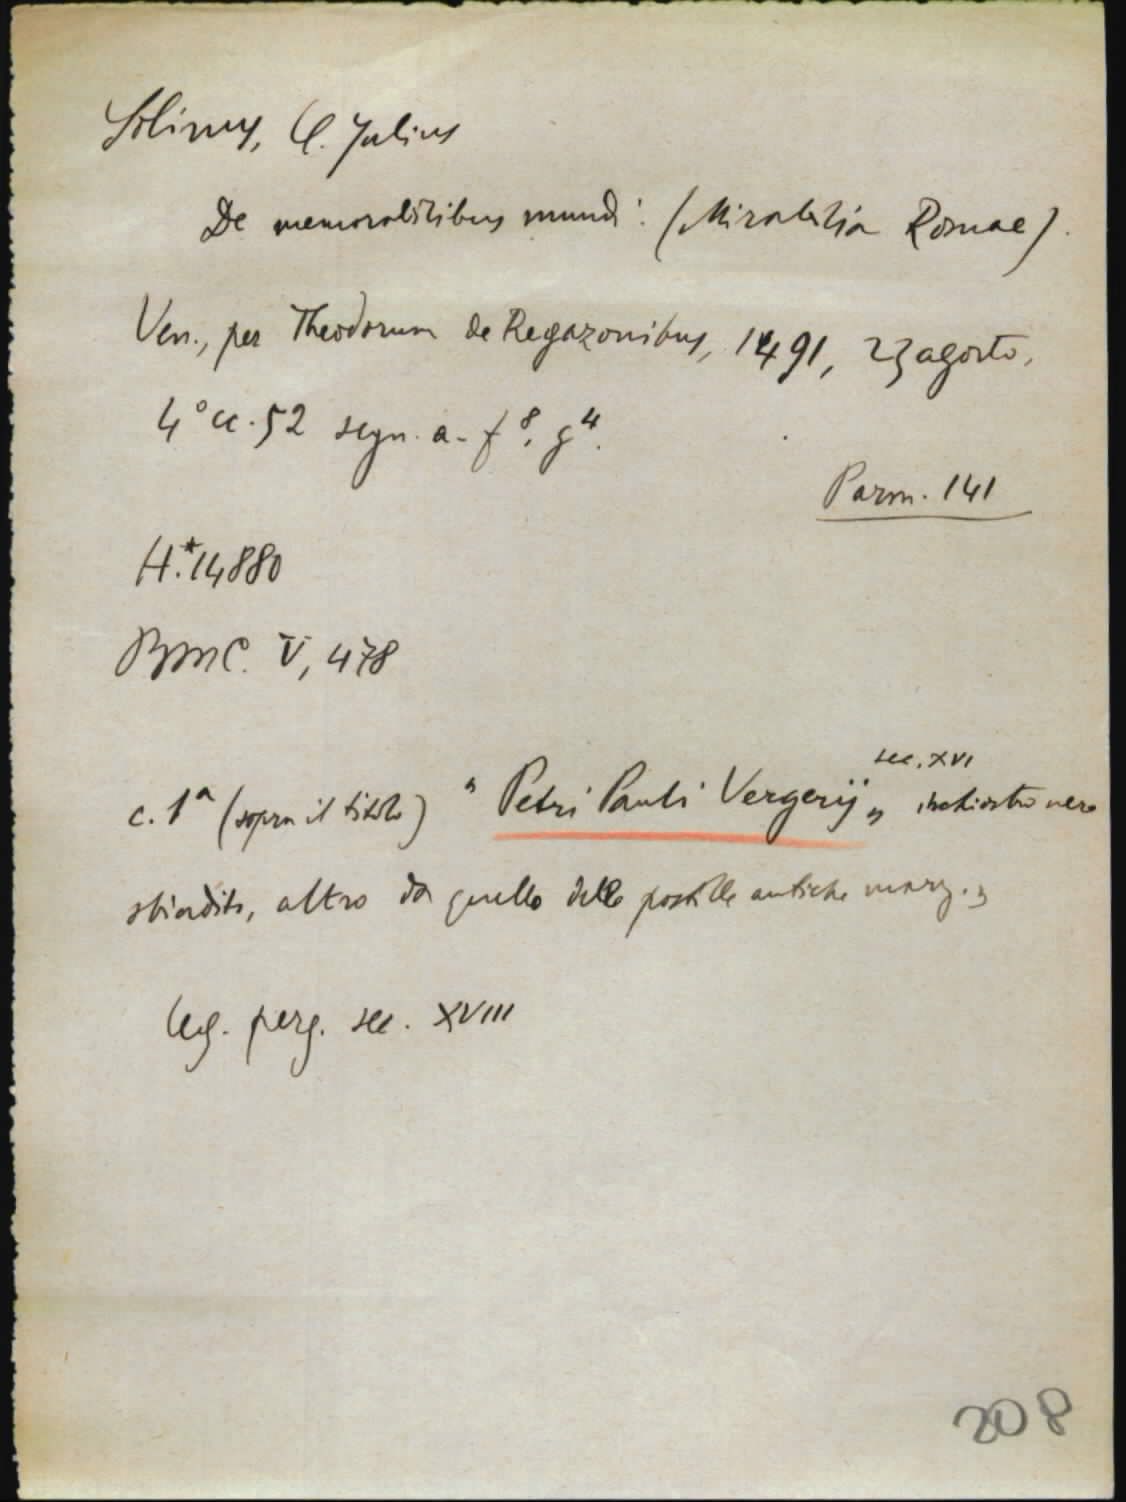 Solinus, C. Julius
De memorabilibus mundi. (Mirabilia Romae).
Ven., per Theodorum de Regazonibus, 1491, 23 agosto,
4° cc. 52 segn. a-f⁸, g⁴.
Parm. 141
H.*14880
BMC. V, 478
sec. XVI
c. 1ª (sopra il titolo) " Petri Pauli Vergerij „ inchiostro nero
sbiadito, altro da quello delle postille antiche marg.
Leg. perg. sec. XVIII
208